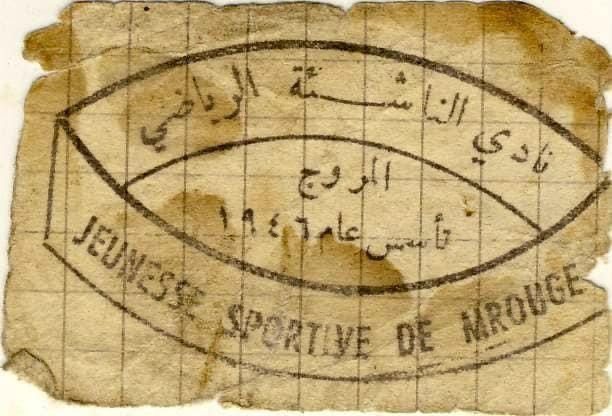 نادي الناشئة الرياضي
المروج
تأسس عام ١٩٤٦
JEUNESSE SPORTIVE DE MROUGE